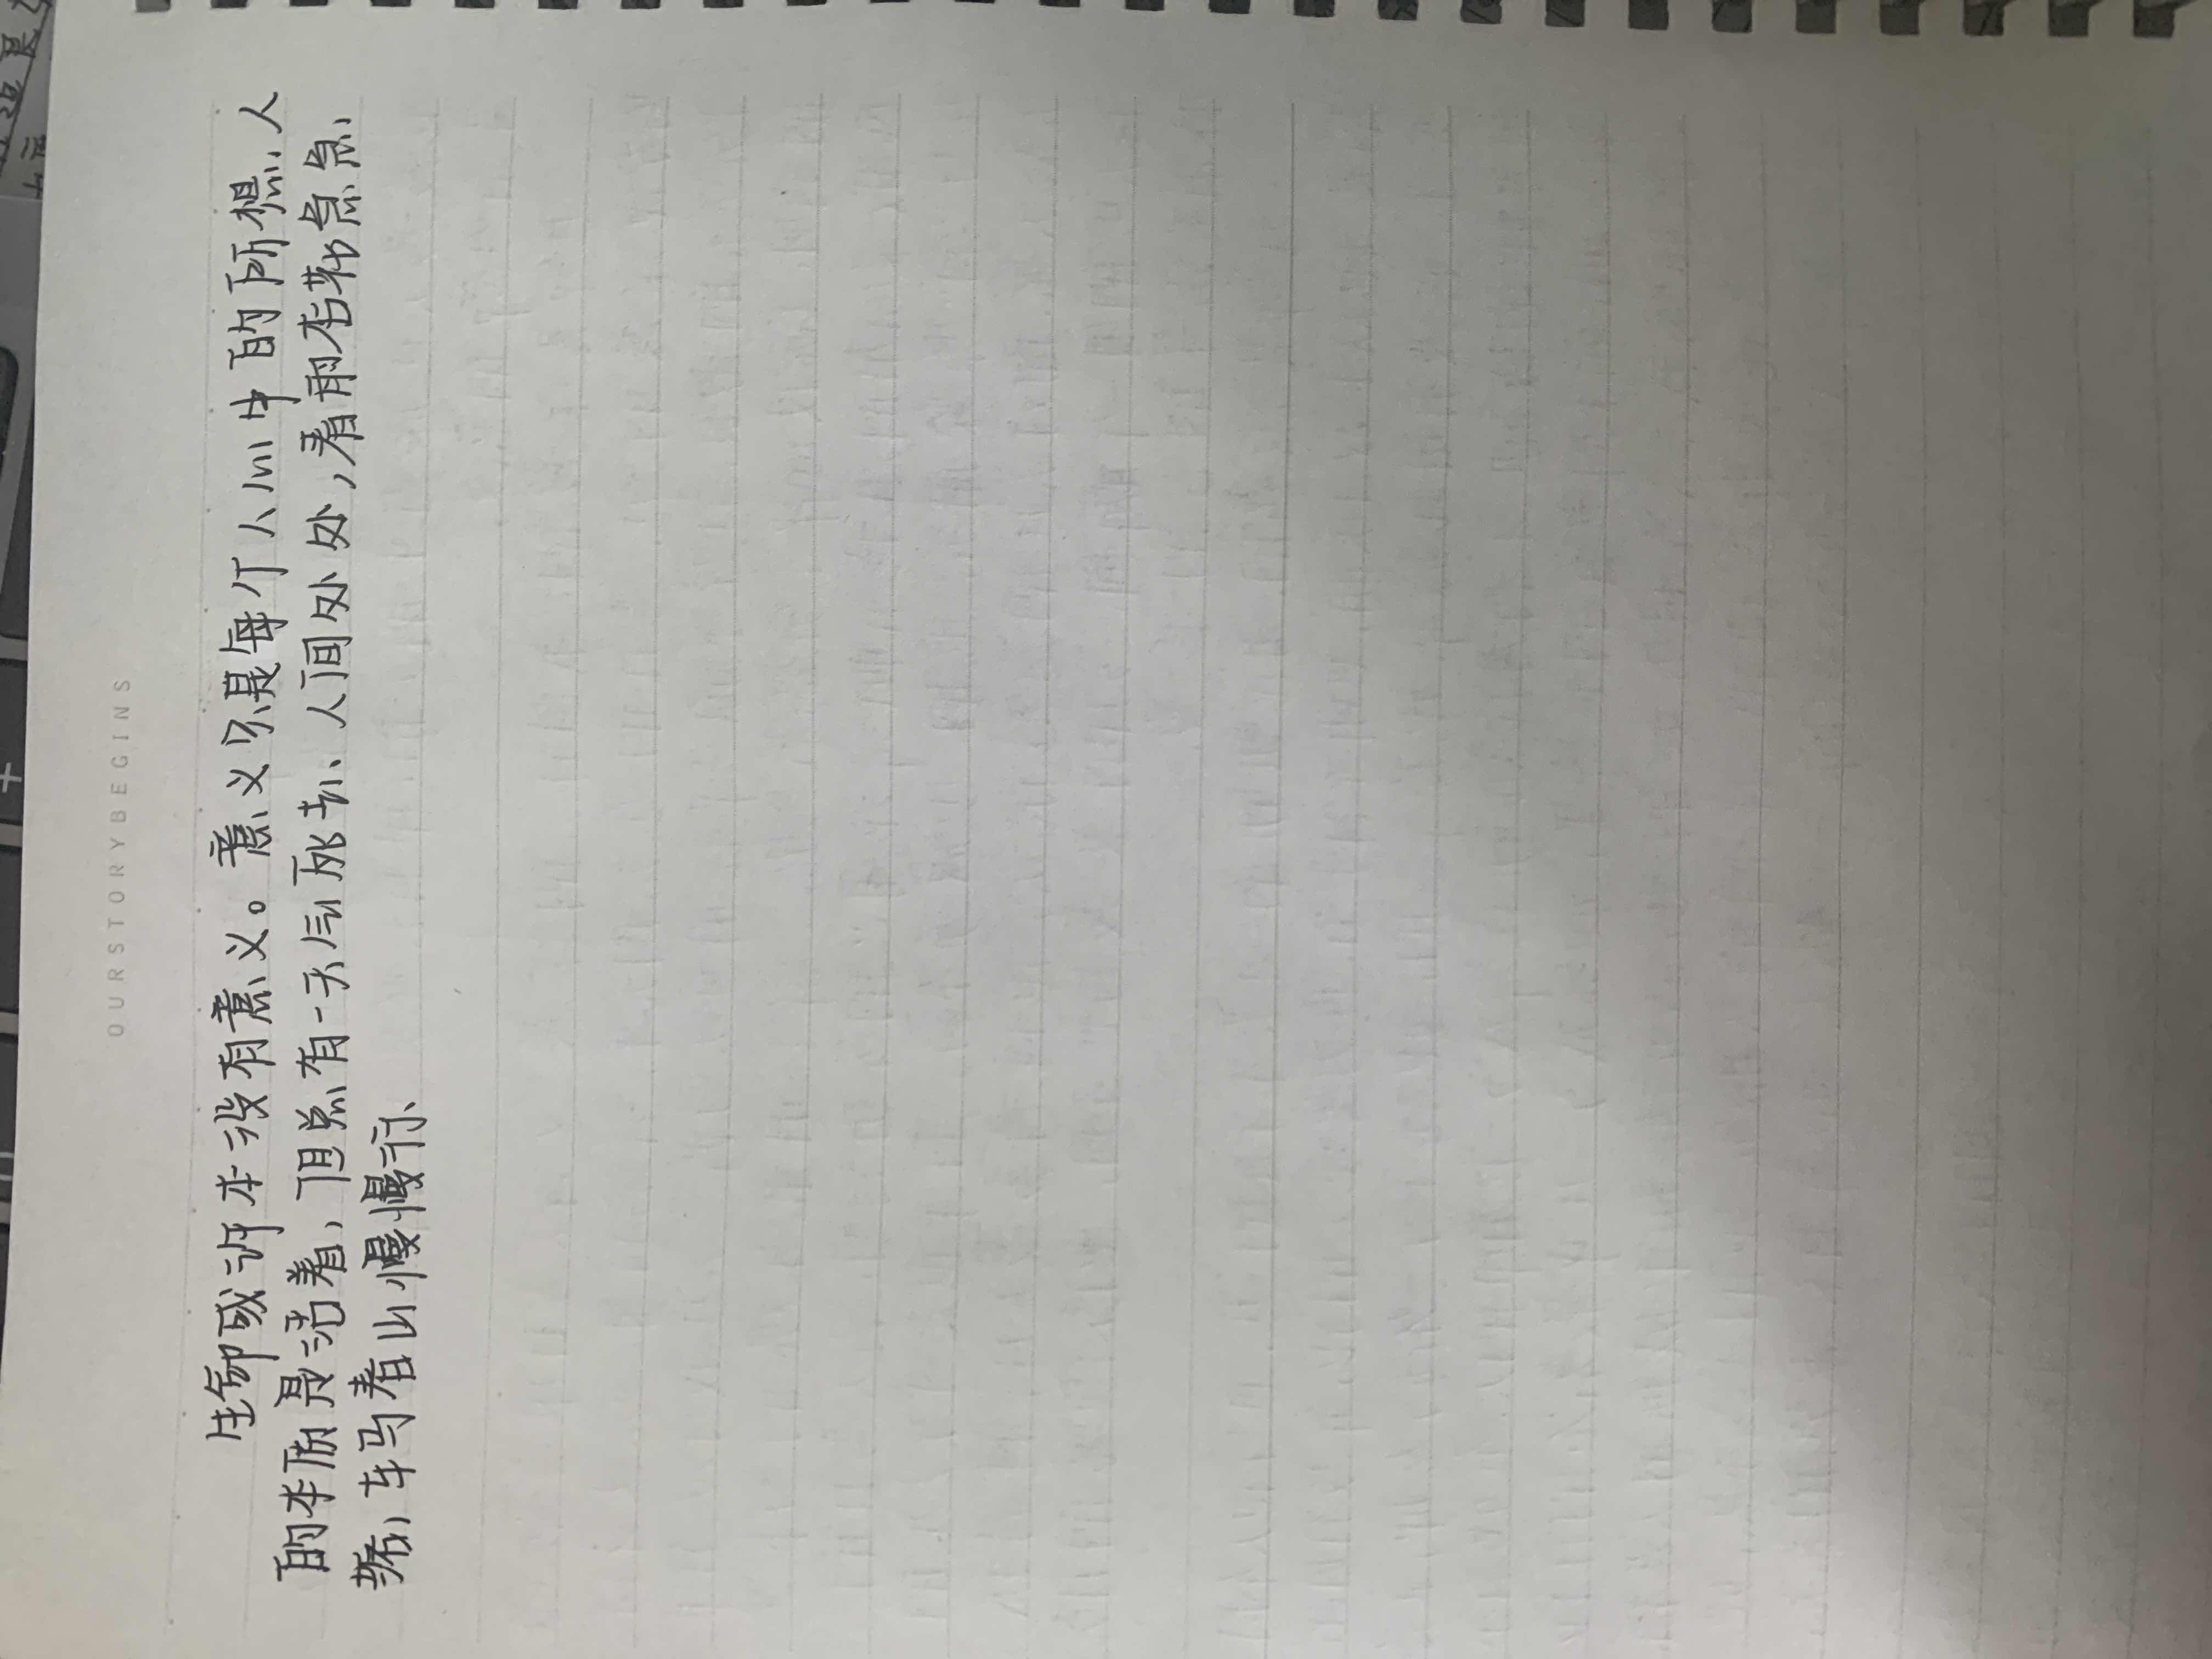 OURSTORYBEGINS
生命或许本没有意义。意义只是每个人心中的所想,人
的本质是活着,但总有一天后死去、人间处处,看雨打花急急
落,车马看山慢慢行、